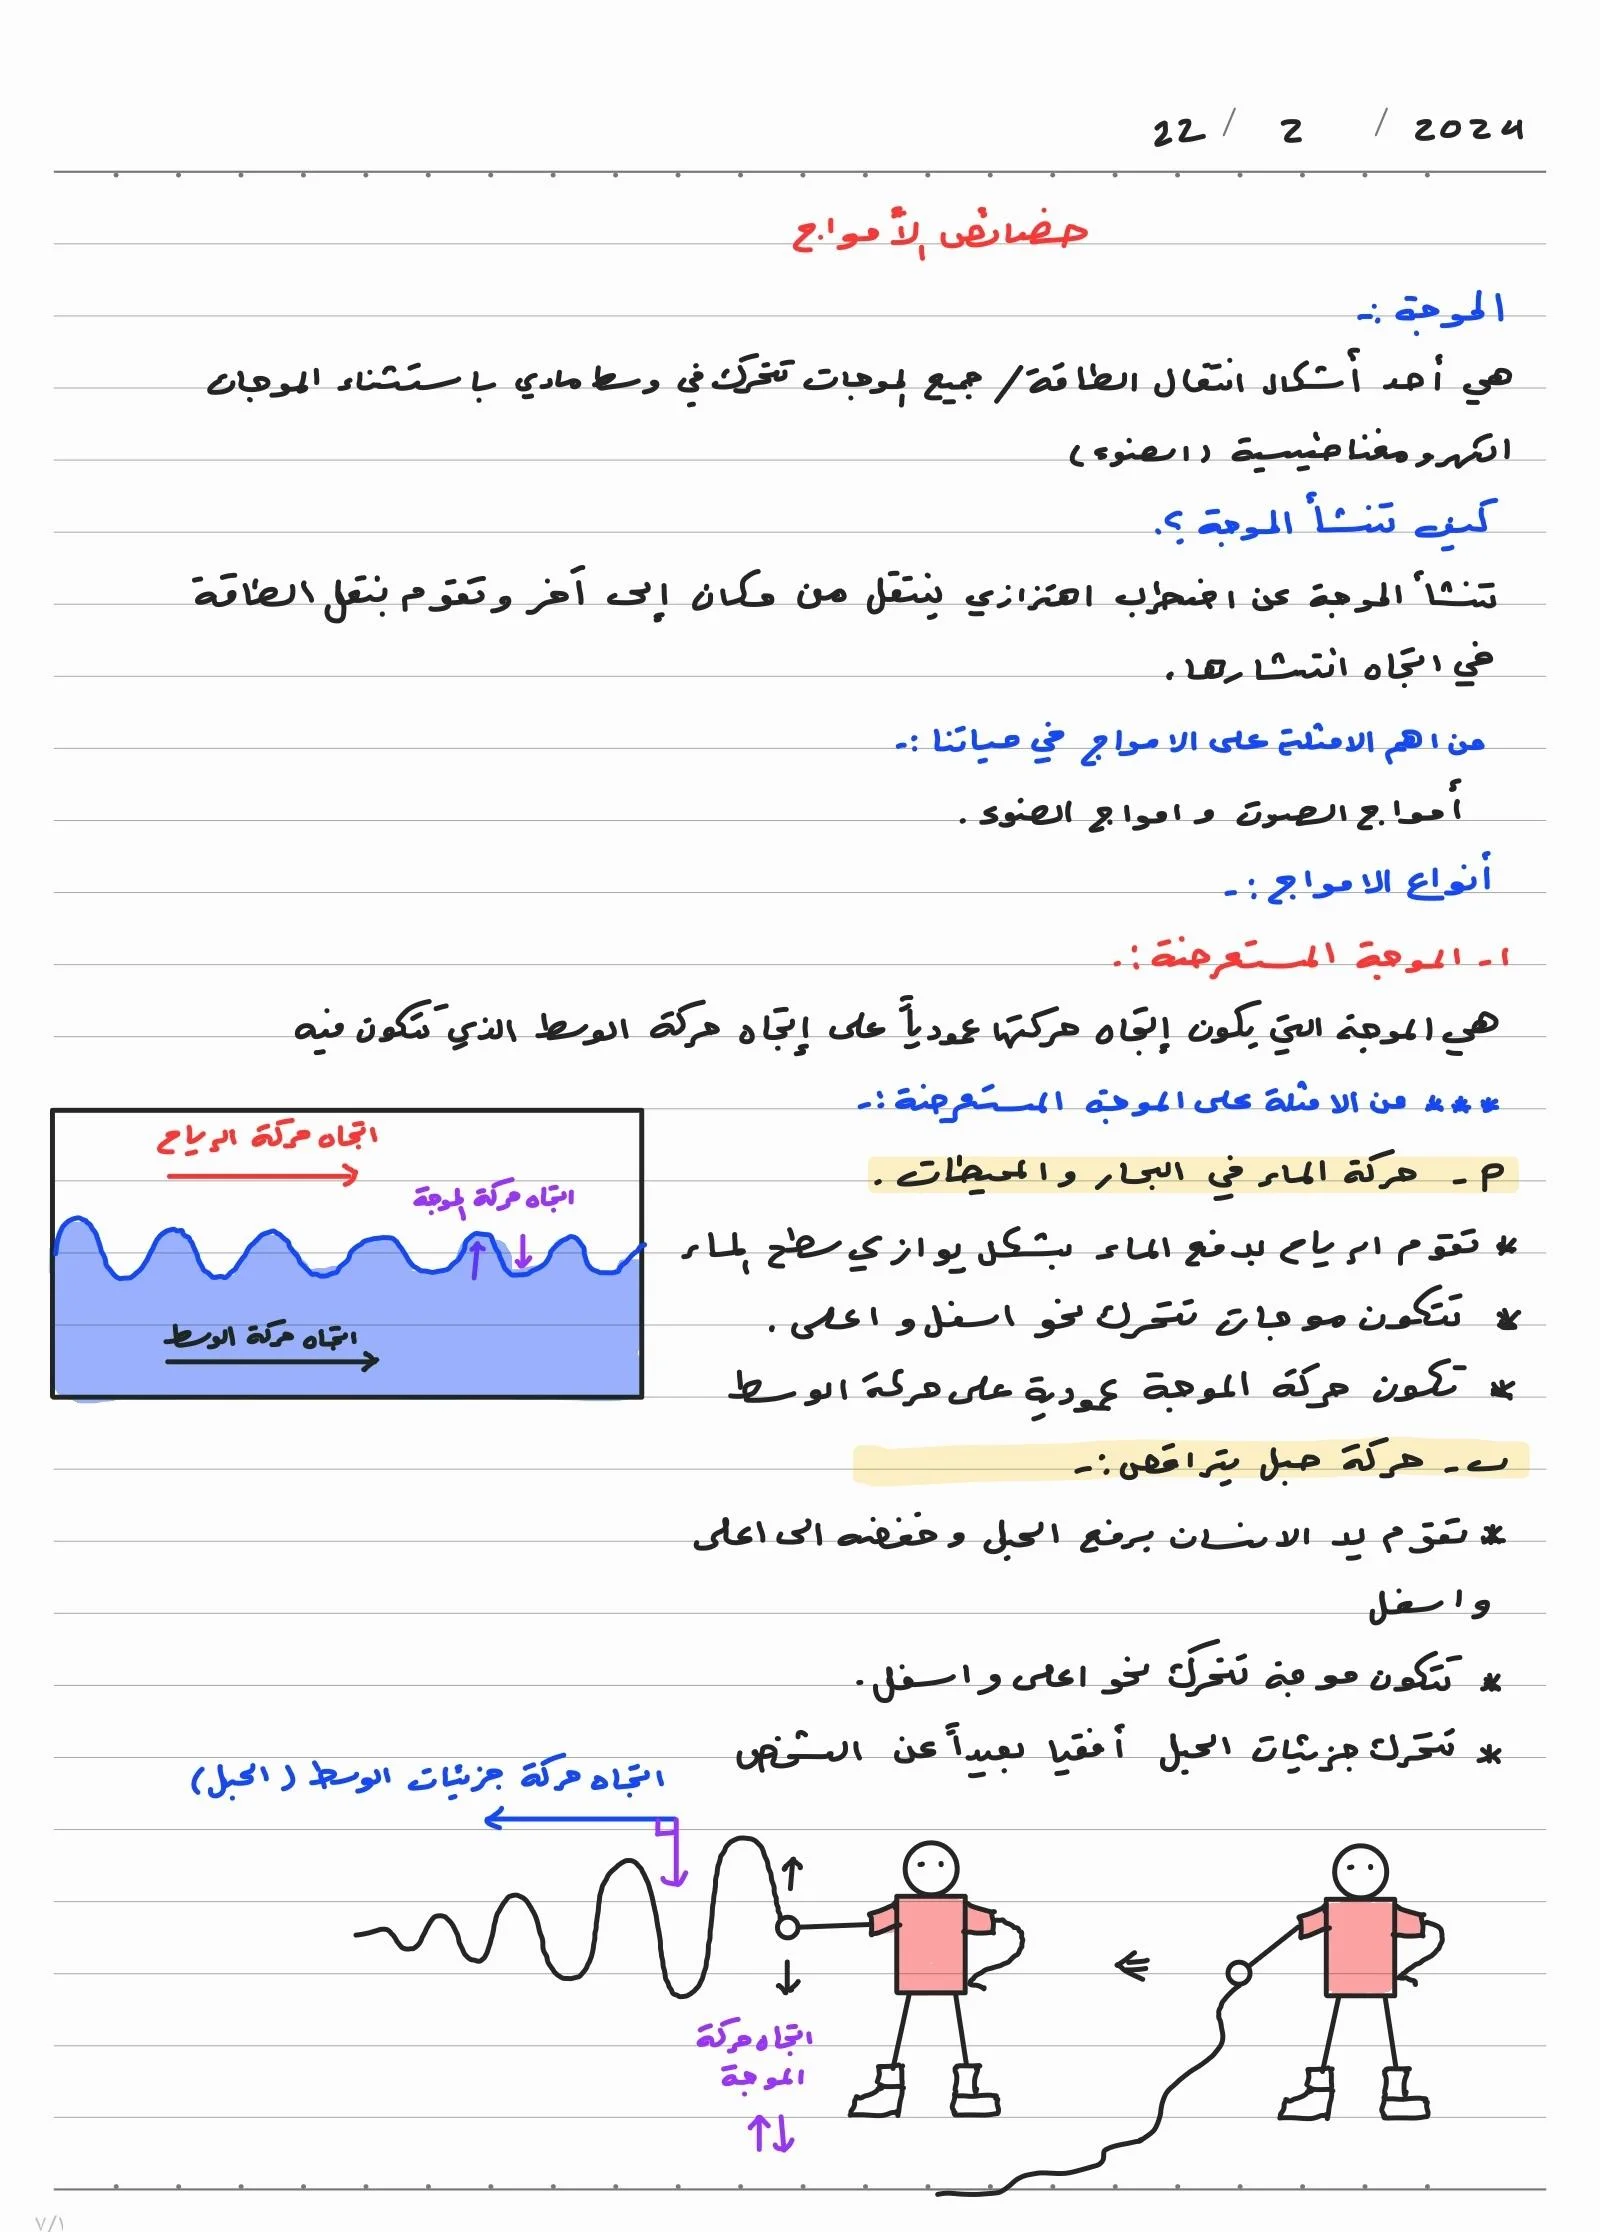 22 / 2 / 2024
خصائص الأمواج
الموجة :-
هي أحد أشكال انتقال الطاقة / جميع الموجات تتحرك في وسط مادي باستثناء الموجات
الكهرومغناطيسية (الضوء)
كيف تنشأ الموجة ؟.
تنشأ الموجة عن اضطراب اهتزازي ينتقل من مكان إلى آخر وتقوم بنقل الطاقة
في اتجاه انتشارها.
من اهم الامثلة على الامواج في حياتنا :-
أمواج الصوت و امواج الضوء .
أنواع الامواج :-
١- الموجة المستعرضة :.
هي الموجة التي يكون إتجاه حركتها عمودياً على إتجاه حركة الوسط الذي تتكون فيه
*** من الامثلة على الموجة المستعرضة :-
اتجاه حركة الرياح
م - حركة الماء في البحار والمحيطات .
اتجاه حركة الموجة
* تقوم الرياح بدفع الماء بشكل يوازي سطح الماء
* تتكون موجات تتحرك نحو اسفل و اعلى .
اتجاه حركة الوسط
* تكون حركة الموجة عمودية على حركة الوسط
ب - حركة حبل يتراقص :-
* تقوم يد الانسان برفع الحبل وخفضه الى اعلى
و اسفل
* تتكون موجة تتحرك نحو اعلى و اسفل .
* تتحرك جزيئات الحبل أفقيا بعيداً عن الشخص
اتجاه حركة جزيئات الوسط (الحبل)
اتجاه حركة
الموجة
٧/١